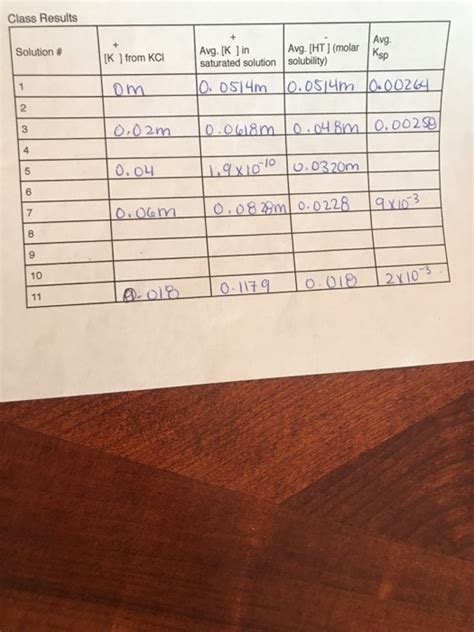 Class Results
Solution # | + [K ] from KCl | + Avg. [K ] in saturated solution | - Avg. [HT ] (molar solubility) | Avg. Ksp
1 | 0m | 0.0514m | 0.0514m | 0.00264
2
3 | 0.02m | 0.0618m | 0.048m | 0.00258
4
5 | 0.04 | 1.9x10-10 | 0.0320m
6
7 | 0.06m | 0.0828m | 0.0228 | 9x10-3
8
9
10
11 | 0.018 | 0.1179 | 0.018 | 2x10-3